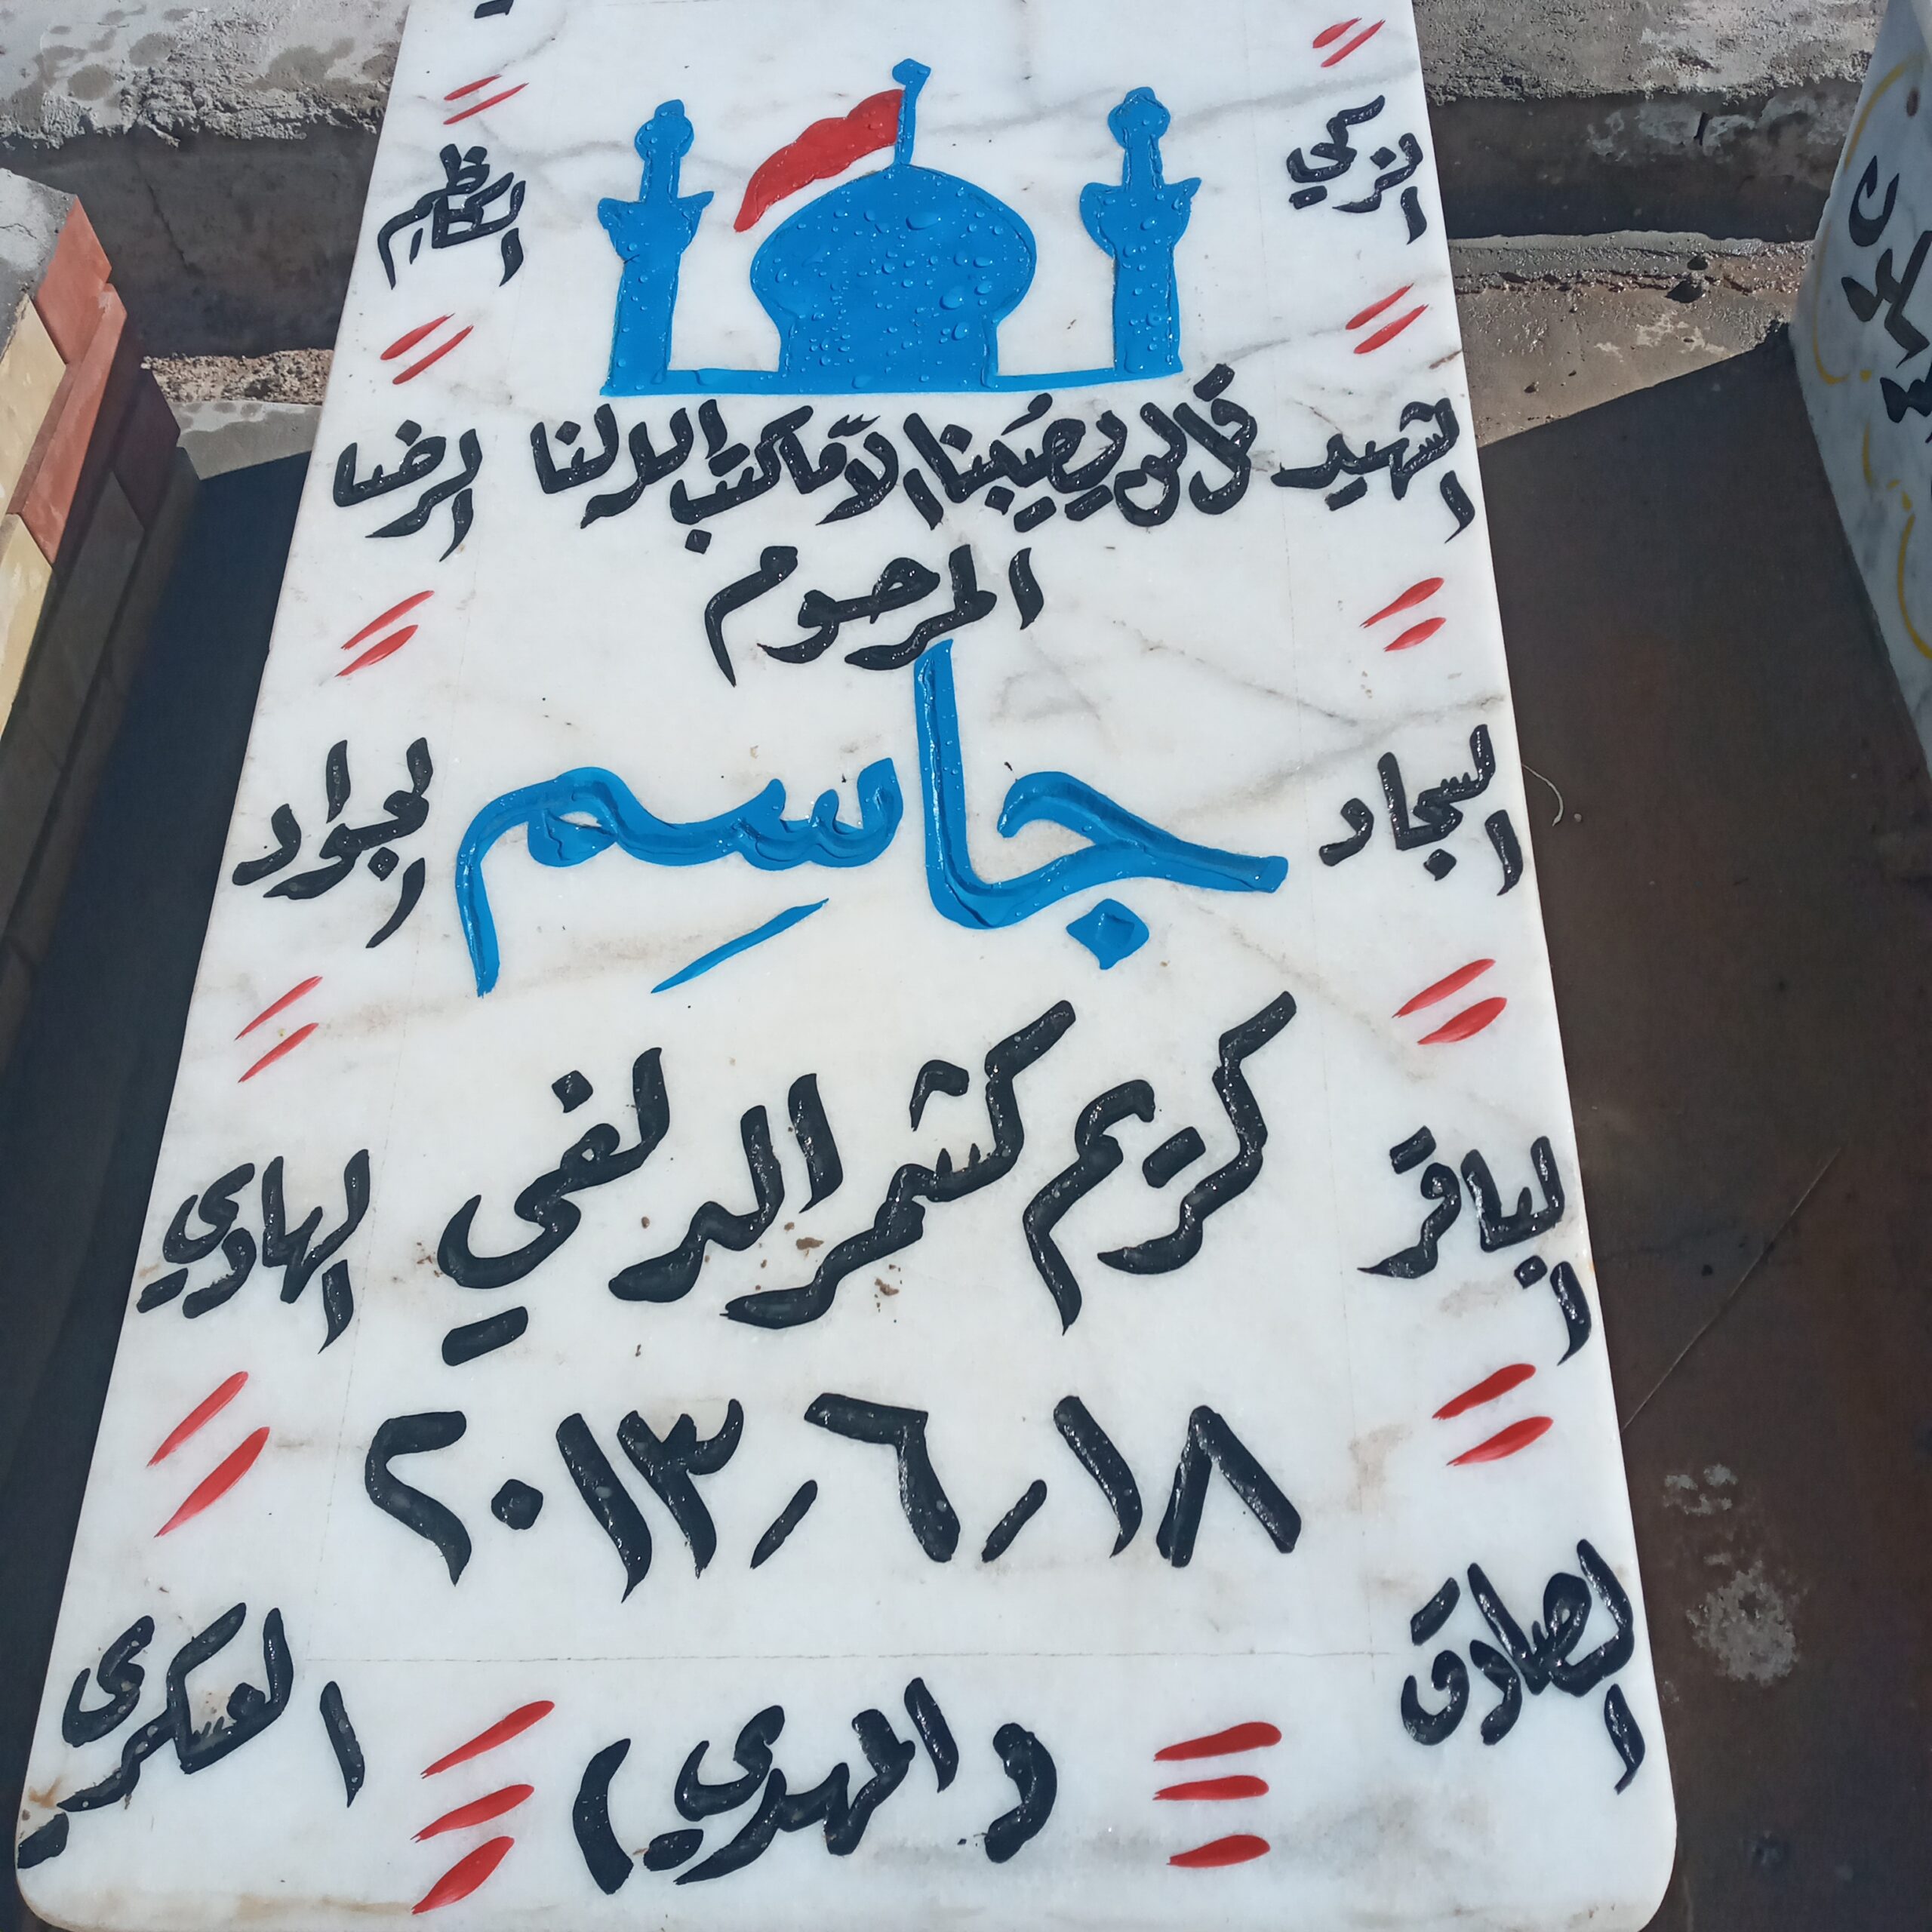 الزكي
الكاظم
الشهيد
قل لن يصيبنا الا ما كتب الله لنا
الرضا
المرحوم
السجاد
جاسِم
الجواد
الباقر
كريم كشمر الدلفي
الهادي
١٨ / ٦ / ٢٠١٣
الصادق
العسكري
(المهدي)